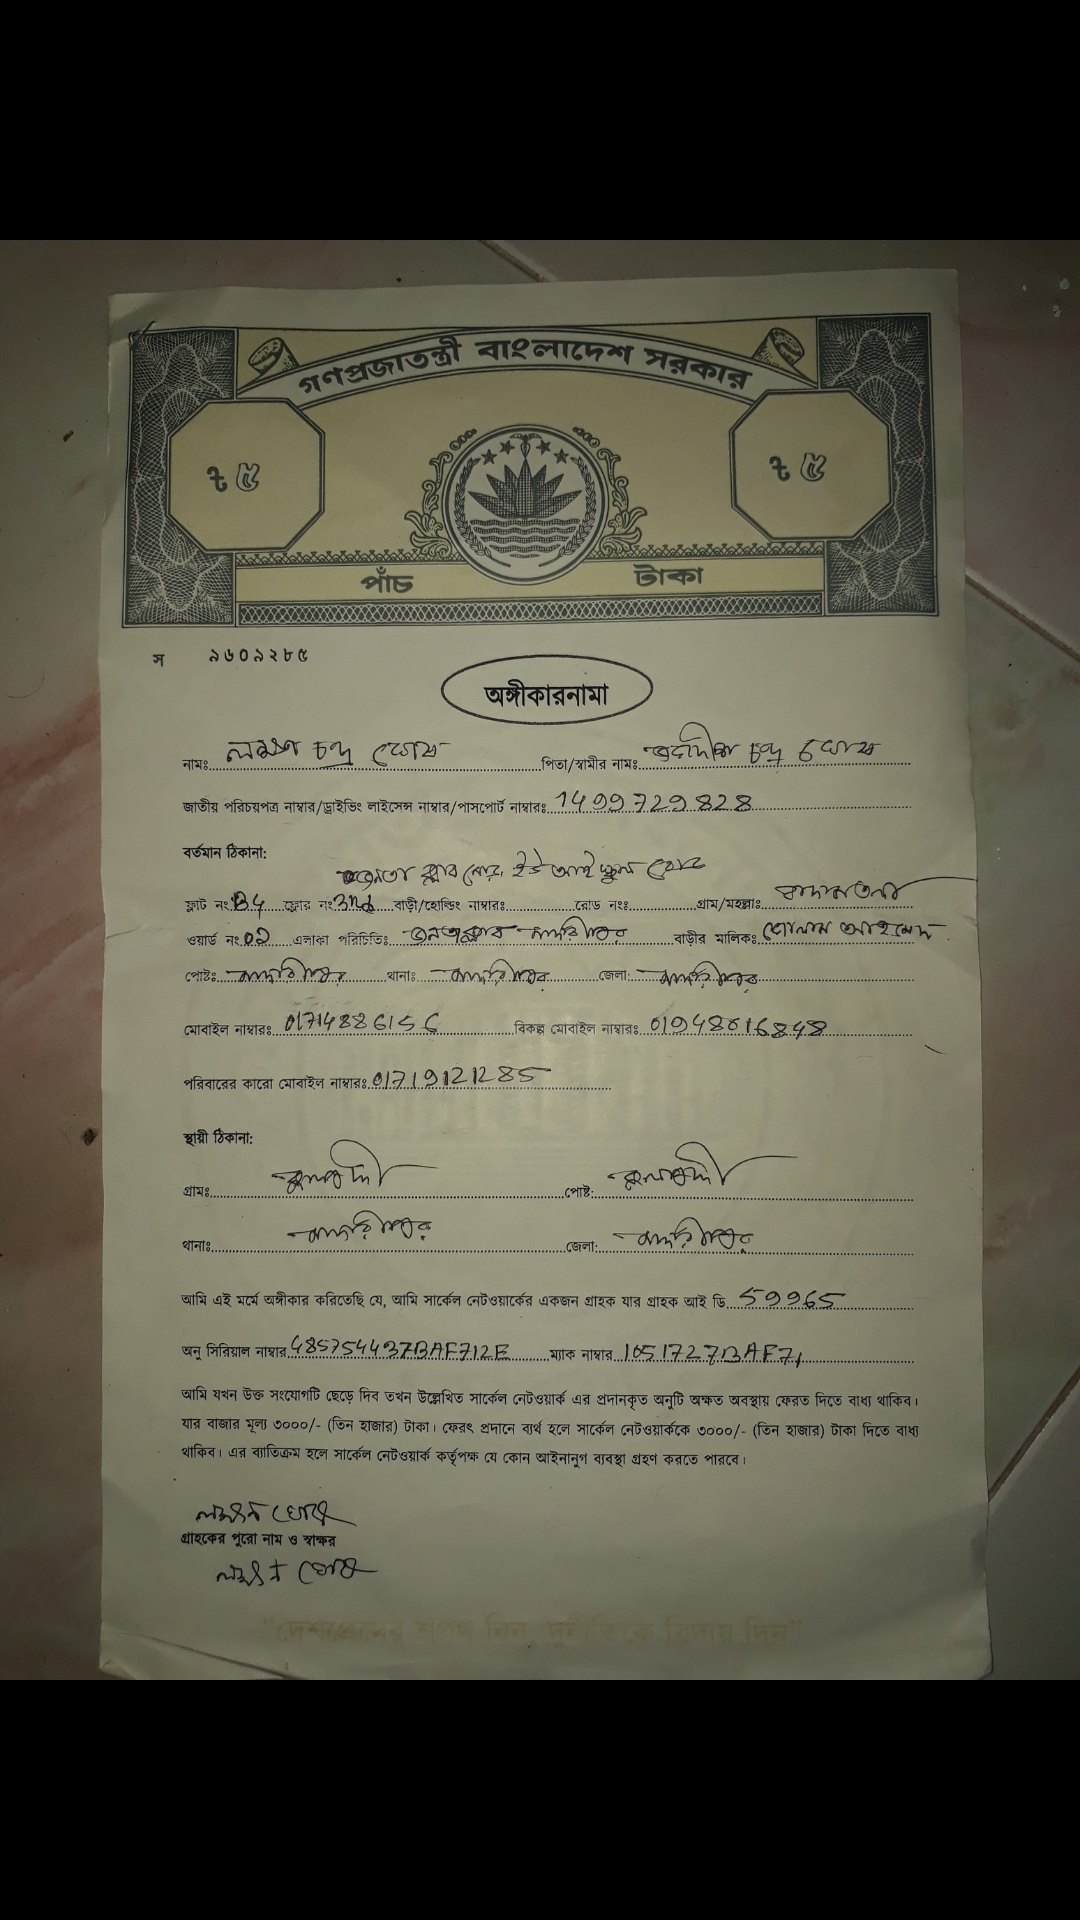 গণপ্রজাতন্ত্রী বাংলাদেশ সরকার
ট ৫ ট ৫
পাঁচ টাকা
স ৯৬০৯২৮৫
অঙ্গীকারনামা
নামঃ লক্ষণ চন্দ্র ঘোষ পিতা/স্বামীর নামঃ জগদীশ চন্দ্র ঘোষ
জাতীয় পরিচয়পত্র নাম্বার/ড্রাইভিং লাইসেন্স নাম্বার/পাসপোর্ট নাম্বারঃ 1499729828
বর্তমান ঠিকানা:
জনতা ক্লাব রোড, ইউ আই স্কুল রোড
ফ্লাট নং B4 ফ্লোর নং 3rd বাড়ী/হোল্ডিং নাম্বারঃ রোড নংঃ গ্রাম/মহল্লাঃ
ওয়ার্ড নং 02 এলাকা পরিচিতিঃ জনতা ক্লাব মাদারীপুর বাড়ীর মালিকঃ গোলাম আহমেদ
পোষ্টঃ মাদারীপুর থানাঃ মাদারীপুর জেলা: মাদারীপুর
মোবাইল নাম্বারঃ 01714886156 বিকল্প মোবাইল নাম্বারঃ 01948616848
পরিবারের কারো মোবাইল নাম্বারঃ 01719121285
স্থায়ী ঠিকানা:
গ্রামঃ কুলপদ্দী পোষ্ট: কুলপদ্দী
থানাঃ মাদারীপুর জেলা: মাদারীপুর
আমি এই মর্মে অঙ্গীকার করিতেছি যে, আমি সার্কেল নেটওয়ার্কের একজন গ্রাহক যার গ্রাহক আই ডি 59965
অনু সিরিয়াল নাম্বার 485754437BAF712E ম্যাক নাম্বার 1051727BAF71
আমি যখন উক্ত সংযোগটি ছেড়ে দিব তখন উল্লেখিত সার্কেল নেটওয়ার্ক এর প্রদানকৃত অনুটি অক্ষত অবস্থায় ফেরত দিতে বাধ্য থাকিব।
যার বাজার মূল্য ৩০০০/- (তিন হাজার) টাকা। ফেরৎ প্রদানে ব্যর্থ হলে সার্কেল নেটওয়ার্ককে ৩০০০/- (তিন হাজার) টাকা দিতে বাধ্য
থাকিব। এর ব্যতিক্রম হলে সার্কেল নেটওয়ার্ক কর্তৃপক্ষ যে কোন আইনানুগ ব্যবস্থা গ্রহণ করতে পারবে।
লক্ষণ ঘোষ
গ্রাহকের পুরো নাম ও স্বাক্ষর
লক্ষণ ঘোষ
"দেশপ্রেমের শপথ নিন, দুর্নীতিকে বিদায় দিন"